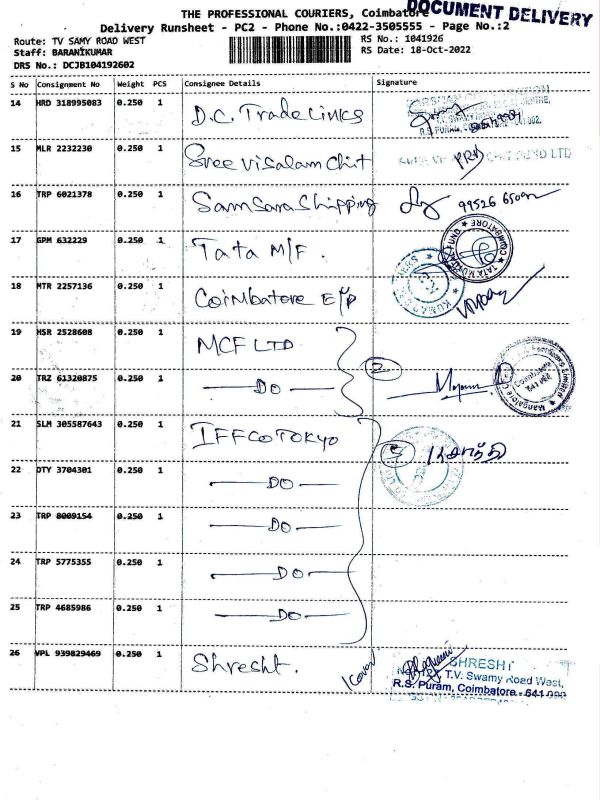 DOCUMENT DELIVERY
THE PROFESSIONAL COURIERS, Coimbatore
Delivery Runsheet - PC2 - Phone No.:0422-3505555 - Page No.:2
Route: TV SAMY ROAD WEST RS No.: 1041926
Staff: BARANIKUMAR RS Date: 18-Oct-2022
DRS No.: DCJB104192602
S No Consignment No Weight PCS Consignee Details Signature
14 HRD 318995083 0.250 1 D.C. Tradelinks
R.S. PURAM,
15 MLR 2232230 0.250 1 Sree Visalam Chit FUND LTD
16 TRP 6021378 0.250 1 Samsara Shipping
17 GPM 632229 0.250 1 Tata M/F. TATA MUTUAL FUND * COIMBATORE *
18 MTR 2257136 0.250 1 Coimbatore
19 HSR 2528608 0.250 1 MCF LTD
20 TRZ 61320875 0.250 1 DO 2 Coimbatore 641 002
21 SLM 305587643 0.250 1 IFFCO TOKYO 5
22 DTY 3704301 0.250 1 DO
23 TRP 8009154 0.250 1 DO
24 TRP 5775355 0.250 1 DO
25 TRP 4685986 0.250 1 DO
26 VPL 939829469 0.250 1 Shresht. 1 cover SHRESHT
T.V. Swamy Road West,
R.S. Puram, Coimbatore - 641 002